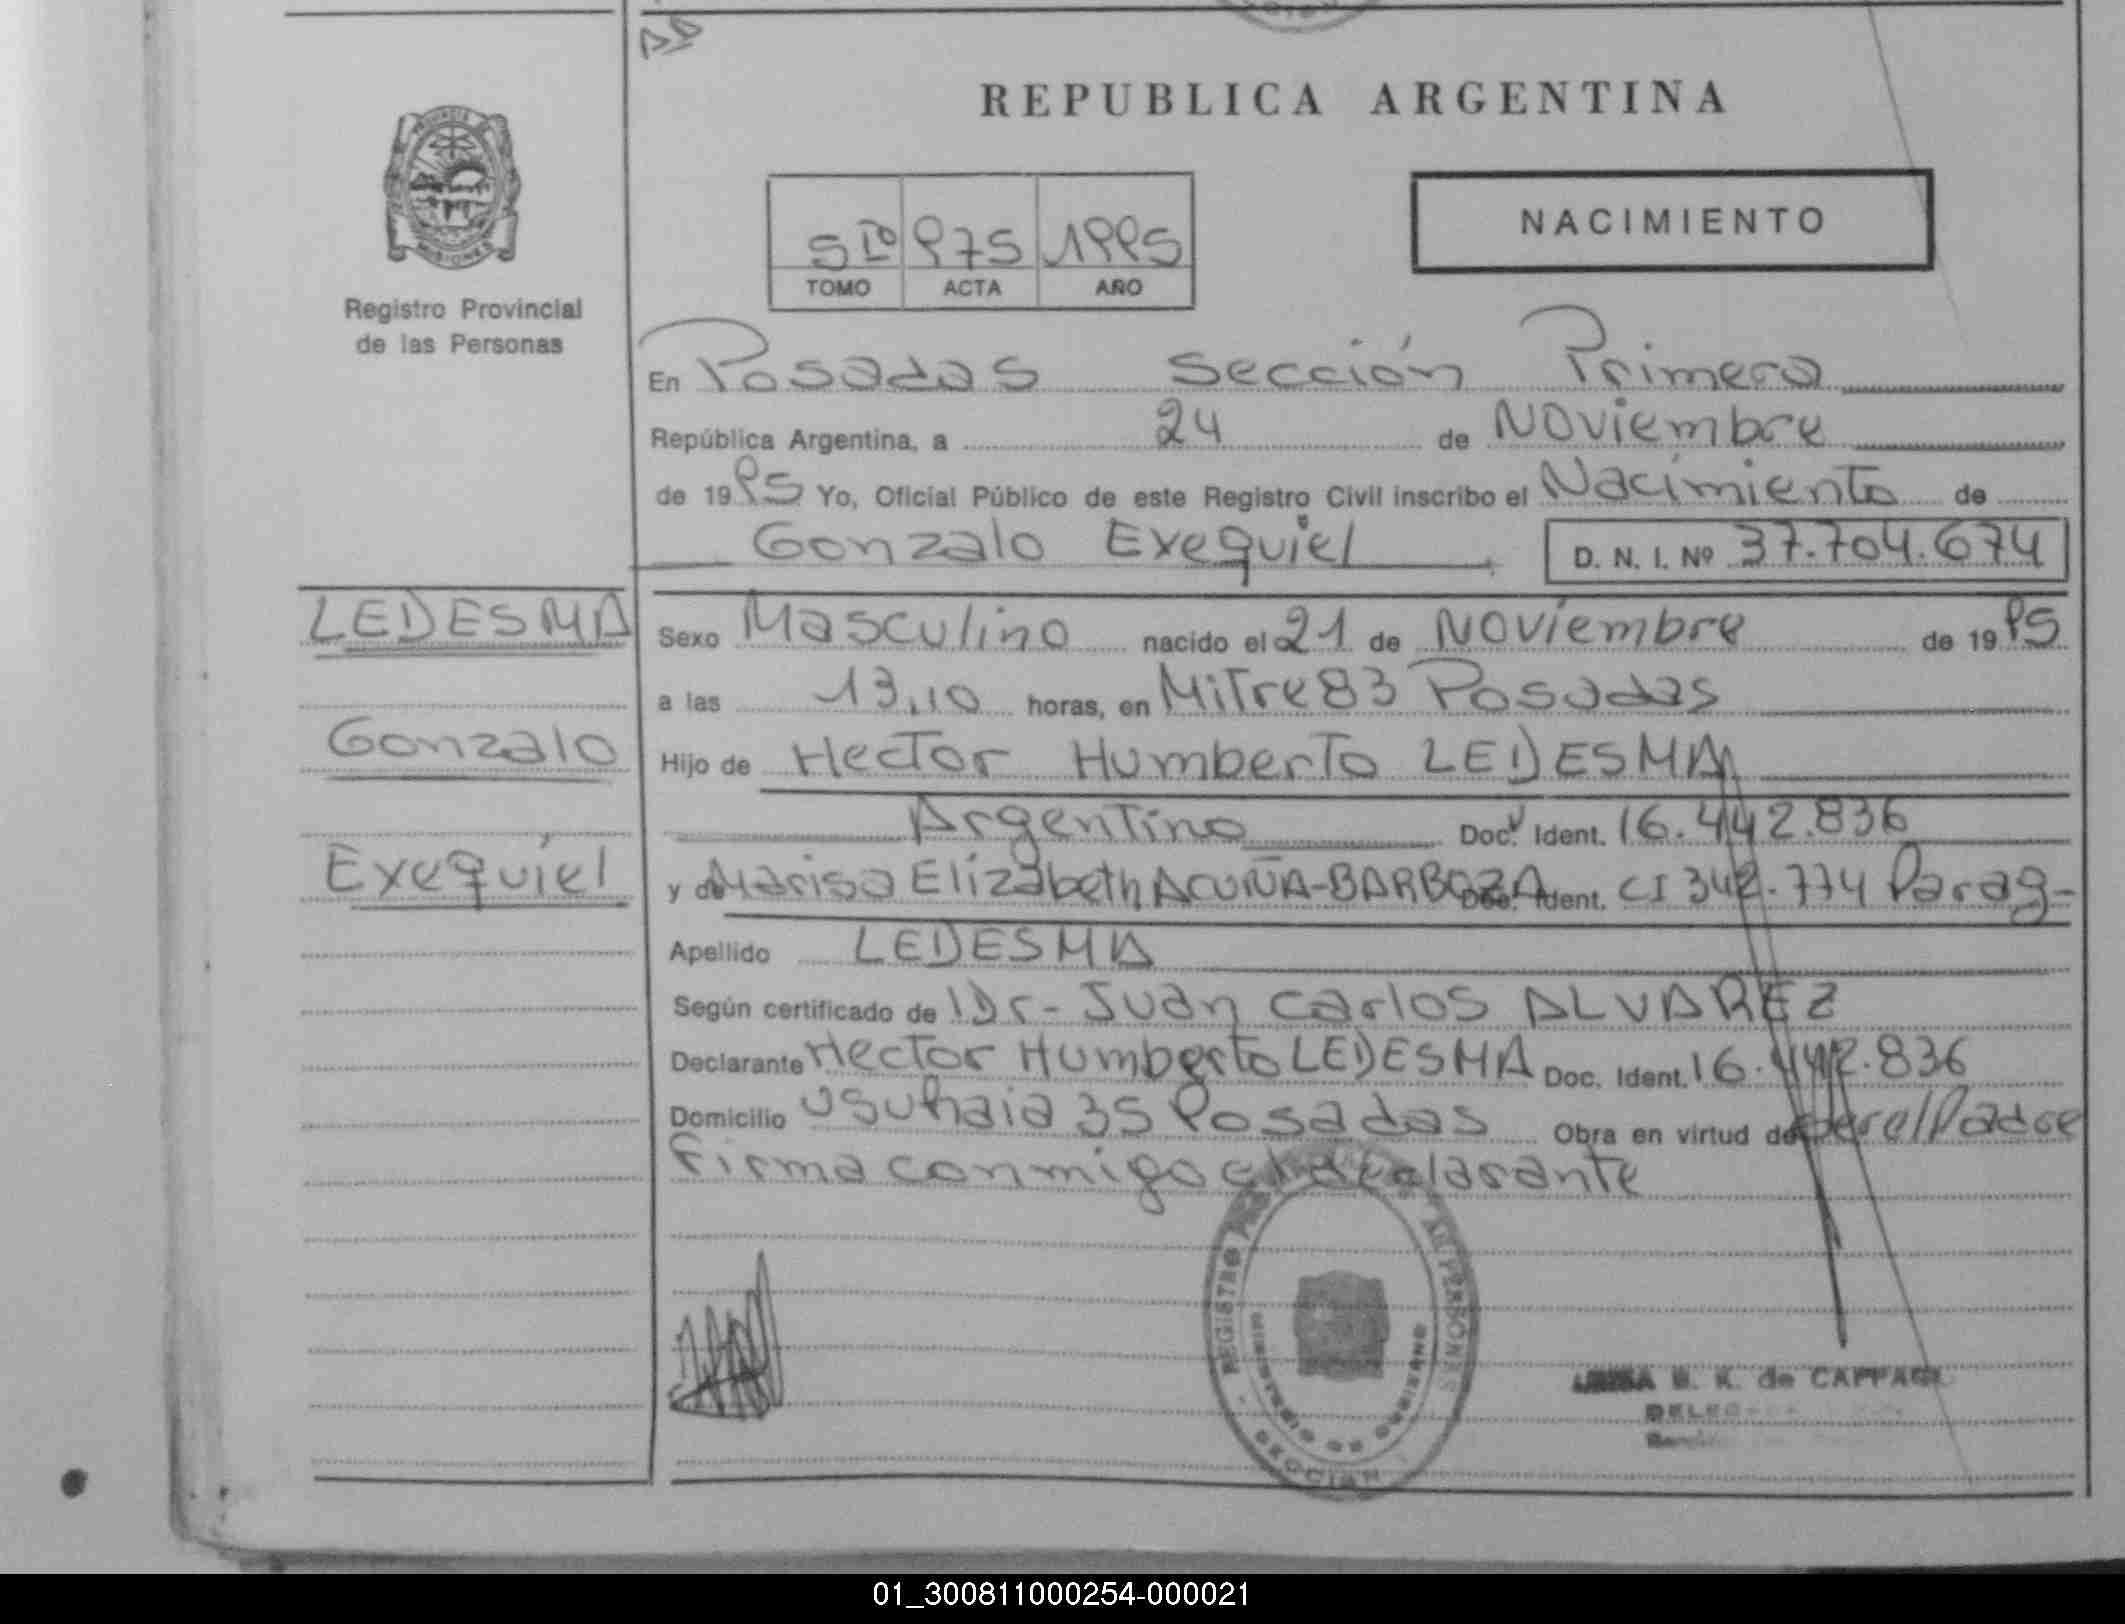 REPUBLICA ARGENTINA
PROVINCIA DE
MISIONES
Registro Provincial
de las Personas
5to 975 1995
TOMO ACTA AÑO
NACIMIENTO
En Posadas Sección Primera
República Argentina, a 24 de Noviembre
de 1995 Yo, Oficial Público de este Registro Civil inscribo el Nacimiento de
Gonzalo Exequiel D. N. I. Nº 37.704.674
LEDESMA
Gonzalo
Exequiel
Sexo Masculino nacido el 21 de Noviembre de 1995
a las 13,10 horas, en Mitre 83 Posadas
Hijo de Hector Humberto LEDESMA
Argentino Doc. Ident. 16.442.836
y de Marisa Elizabeth ACUÑA-BARBOZA Doc. Ident. CI 342.774 Parag-
Apellido LEDESMA
Según certificado de Dr- Juan Carlos ALVAREZ
Declarante Hector Humberto LEDESMA Doc. Ident. 16.442.836
Domicilio Usuhaia 35 Posadas Obra en virtud de ser el Padre
Firma conmigo el declarante
REGISTRO DE LAS PERSONAS
MINISTERIO DE GOBIERNO
K. de CAPPARI
01_300811000254-000021